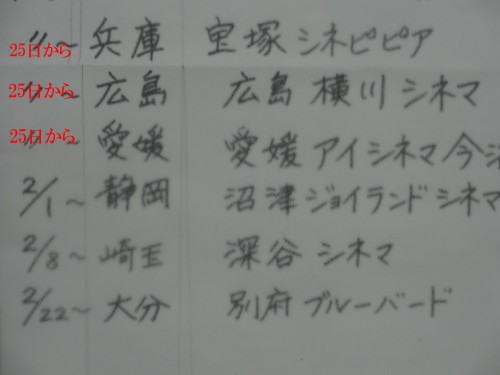 25日から 〃~ 兵庫 宝塚 シネピピア
25日から 〃~ 広島 広島 横川 シネマ
25日から 〃~ 愛媛 愛媛 アイシネマ今治
2/1~ 静岡 沼津 ジョイランド シネマ
2/8~ 崎玉 深谷 シネマ
2/22~ 大分 別府 ブルーバード